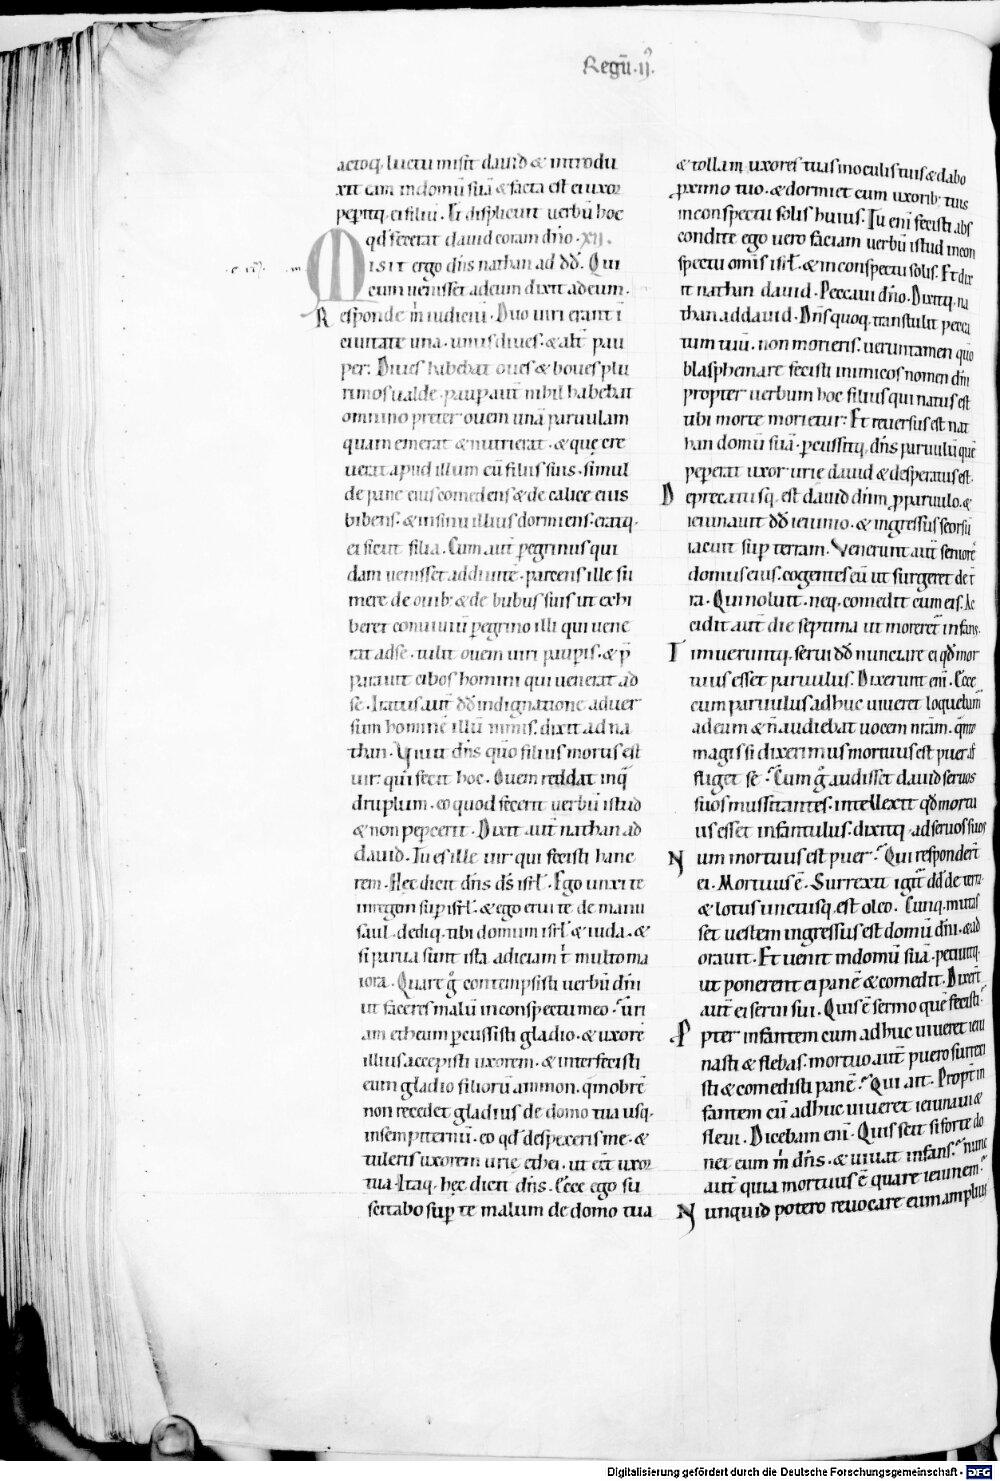 Regū·ij̊.
actoq; luctu misit dauid & introdu
xit eam in domū suā & facta est ei uxor
peperitq; ei filiū. Et displicuit uerbū hoc
qd fecerat dauid coram dn̄o. XII.
Misit ergo dn̄s nathan ad dd̄. Qui
cum uenisset ad eum dixit ad eum.
Responde m̄ iudiciū. Duo uiri erant ī
ciuitate una. unus diues. & alt̄ pau
per. Diues habebat oues & boues plu
rimos ualde. paup aut̄ nihil habebat
omnino preter ouem unā paruulam
quam emerat & nutrierat. & quę cre
uerat apud illum cū filiis suis. simul
de pane eius comedens & de calice eius
bibens. & in sinu illius dormiens. eratq;
ei sicut filia. Cum aut̄ pegrinus qui
dam uenisset ad diuitē. parcens ille su
mere de ouib; & de bubus suis ut exhi
beret conuiuiū pegrino illi qui uene
rat ad se. tulit ouem uiri paupis. & p̄
parauit cibos homini qui uenerat ad
se. Iratus aut̄ dd̄ indignatione aduer
sum hominē illū nimis. dixit ad na
than. Viuit dn̄s qm̄o filius mortis est
uir qui fecit hoc. Ouem reddat in q̄
druplum. eo quod fecerit uerbū istud
& non pepcerit. Dixit aut̄ nathan ad
dauid. Tu es ille uir qui fecisti hanc
rem. Hec dicit dn̄s ds̄ isrl̄. Ego unxi te
in regem sup isrl̄. & ego erui te de manu
saul. dediq; tibi domum isrl̄ & iuda. &
si parua sunt ista adiciam t̄ multo ma
iora. Quare g̊ contempsisti uerbū dn̄i
ut faceres malū in conspectu meo. uri
am etheum pcussisti gladio. & uxorē
illius accepisti uxorem. & interfecisti
eum gladio filiorū ammon. qmobrē
non recedet gladius de domo tua usq;
in sempiternū. eo qd despexeris me. &
tuleris uxorem urię ethei. ut eēt uxor
tua. Itaq; hęc dicit dn̄s. Ecce ego su
scitabo sup te malum de domo tua
& tollam uxores tuas in oculis tuis & dabo
pximo tuo. & dormiet cum uxorib; tuis
in conspectu solis huius. Tu enī fecisti abs
condite ego uero faciam uerbū istud in con
spectu omīs isrl̄. & in conspectu solis. Et dix
it nathan dauid. Peccaui dn̄o. Dixitq; na
than ad dauid. Dn̄s quoq; transtulit pecca
tum tuū. non morieris. ueruntamen qm̄o
blasphemare fecisti inimicos nomen dn̄i
propter uerbum hoc filius qui natus est
tibi morte morietur. Et reuersus est nat
han domū suā. pcussitq; dn̄s paruulū quē
peperat uxor urię dauid & desperatus est.
Deprecatusq; est dauid dn̄m p paruulo. &
ieiunauit dd̄ ieiunio. & ingressus seorsū
iacuit sup terram. Venerunt aut̄ seniorē
domus eius. cogentes eū ut surgeret de t̄
ra. Qui noluit. neq; comedit cum eis. Ac
cidit aut̄ die septima ut moreret̄ infans.
Timueruntq; serui dd̄ nunciare ei qd̄ mor
tuus esset paruulus. Dixerunt enī. Ecce
cum paruulus adhuc uiueret loquebam̄
ad eum & n̄ audiebat uocem nrām. qnto
magis si dixerimus mortuus est puer af
fliget se? Cum g̊ audisset dauid seruos
suos mussitantes. intellexit qd̄ mortu
us esset infantulus. dixitq; ad seruos suos
Num mortuus est puer? Qui responder̄t
ei. Mortuus ē. Surrexit igit̄ dd̄ de terra
& lotus unctusq; est oleo. Cunq; mutas
set uestem ingressus est domū dn̄i. & ad
orauit. Et uenit in domū suā. petiuitq;
ut ponerent ei panē & comedit. Dixer̄t
aut̄ ei serui sui. Quis ē sermo quē fecisti?
Ppter infantem cum adhuc uiueret ieiu
nasti & flebas. mortuo aut̄ puero surrexi
sti & comedisti panē? Qui ait. Propt̄ in
fantem cū adhuc uiueret ieiunaui &
fleui. Dicebam enī. Quis scit si forte do
net eum m̄ dn̄s. & uiuat infans? nunc
aut̄ quia mortuus ē quare ieiunem?
Nunquid potero reuocare eum amplius
Digitalisierung gefördert durch die Deutsche Forschungsgemeinschaft - DFG